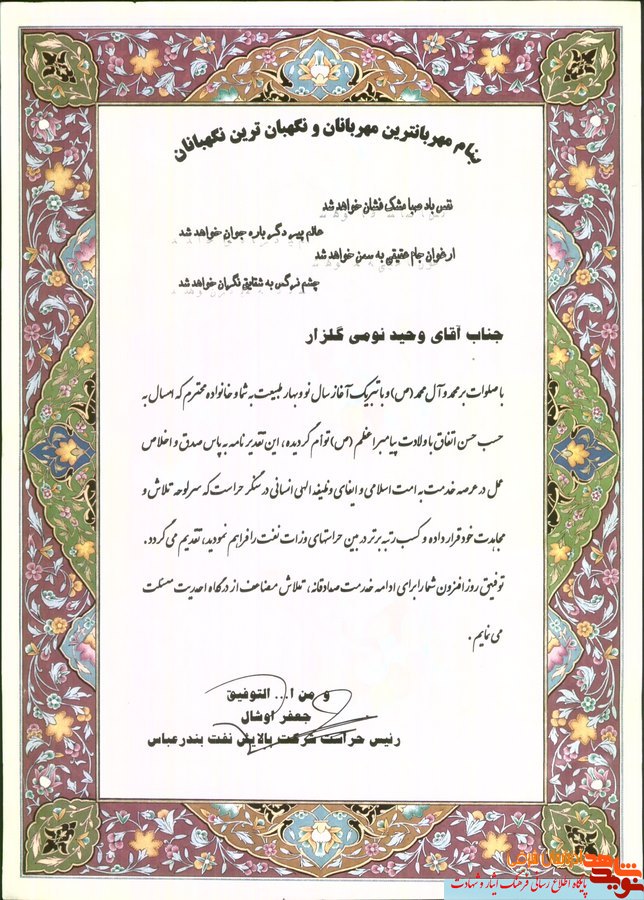 بنام مهربانترین مهربانان و نگهبان ترین نگهبانان
نفس باد صبا مشک فشان خواهد شد
عالم پیر دگر باره جوان خواهد شد
ارغوان جام عقیقی به سمن خواهد شد
چشم نرگس به شقایق نگران خواهد شد
جناب آقای وحید نومی گلزار
با صلوات بر محمد و آل محمد (ص) و با تبریک آغاز سال نو و بهار طبیعت به شما و خانواده محترم که امسال به
حسب حسن اتفاق با ولادت پیامبر اعظم (ص) توام گردیده، این تقدیر نامه به پاس صدق و اخلاص
عمل در عرصه خدمت به امت اسلامی و ایفای وظیفه الهی انسانی در سنگر حراست که سرلوحه تلاش و
مجاهدت خود قرار داده و کسب رتبه برتر در بین حراستهای وزرات نفت را فراهم نمودید، تقدیم می گردد.
توفیق روز افزون شما را برای ادامه خدمت صادقانه، تلاش مضاعف از درگاه احدیت مسئلت
می نمایم.
و من ا... التوفیق
جعفر اوشال
رئیس حراست شرکت پالایش نفت بندرعباس
نوید شاهد
پایگاه اطلاع رسانی فرهنگ ایثار و شهادت